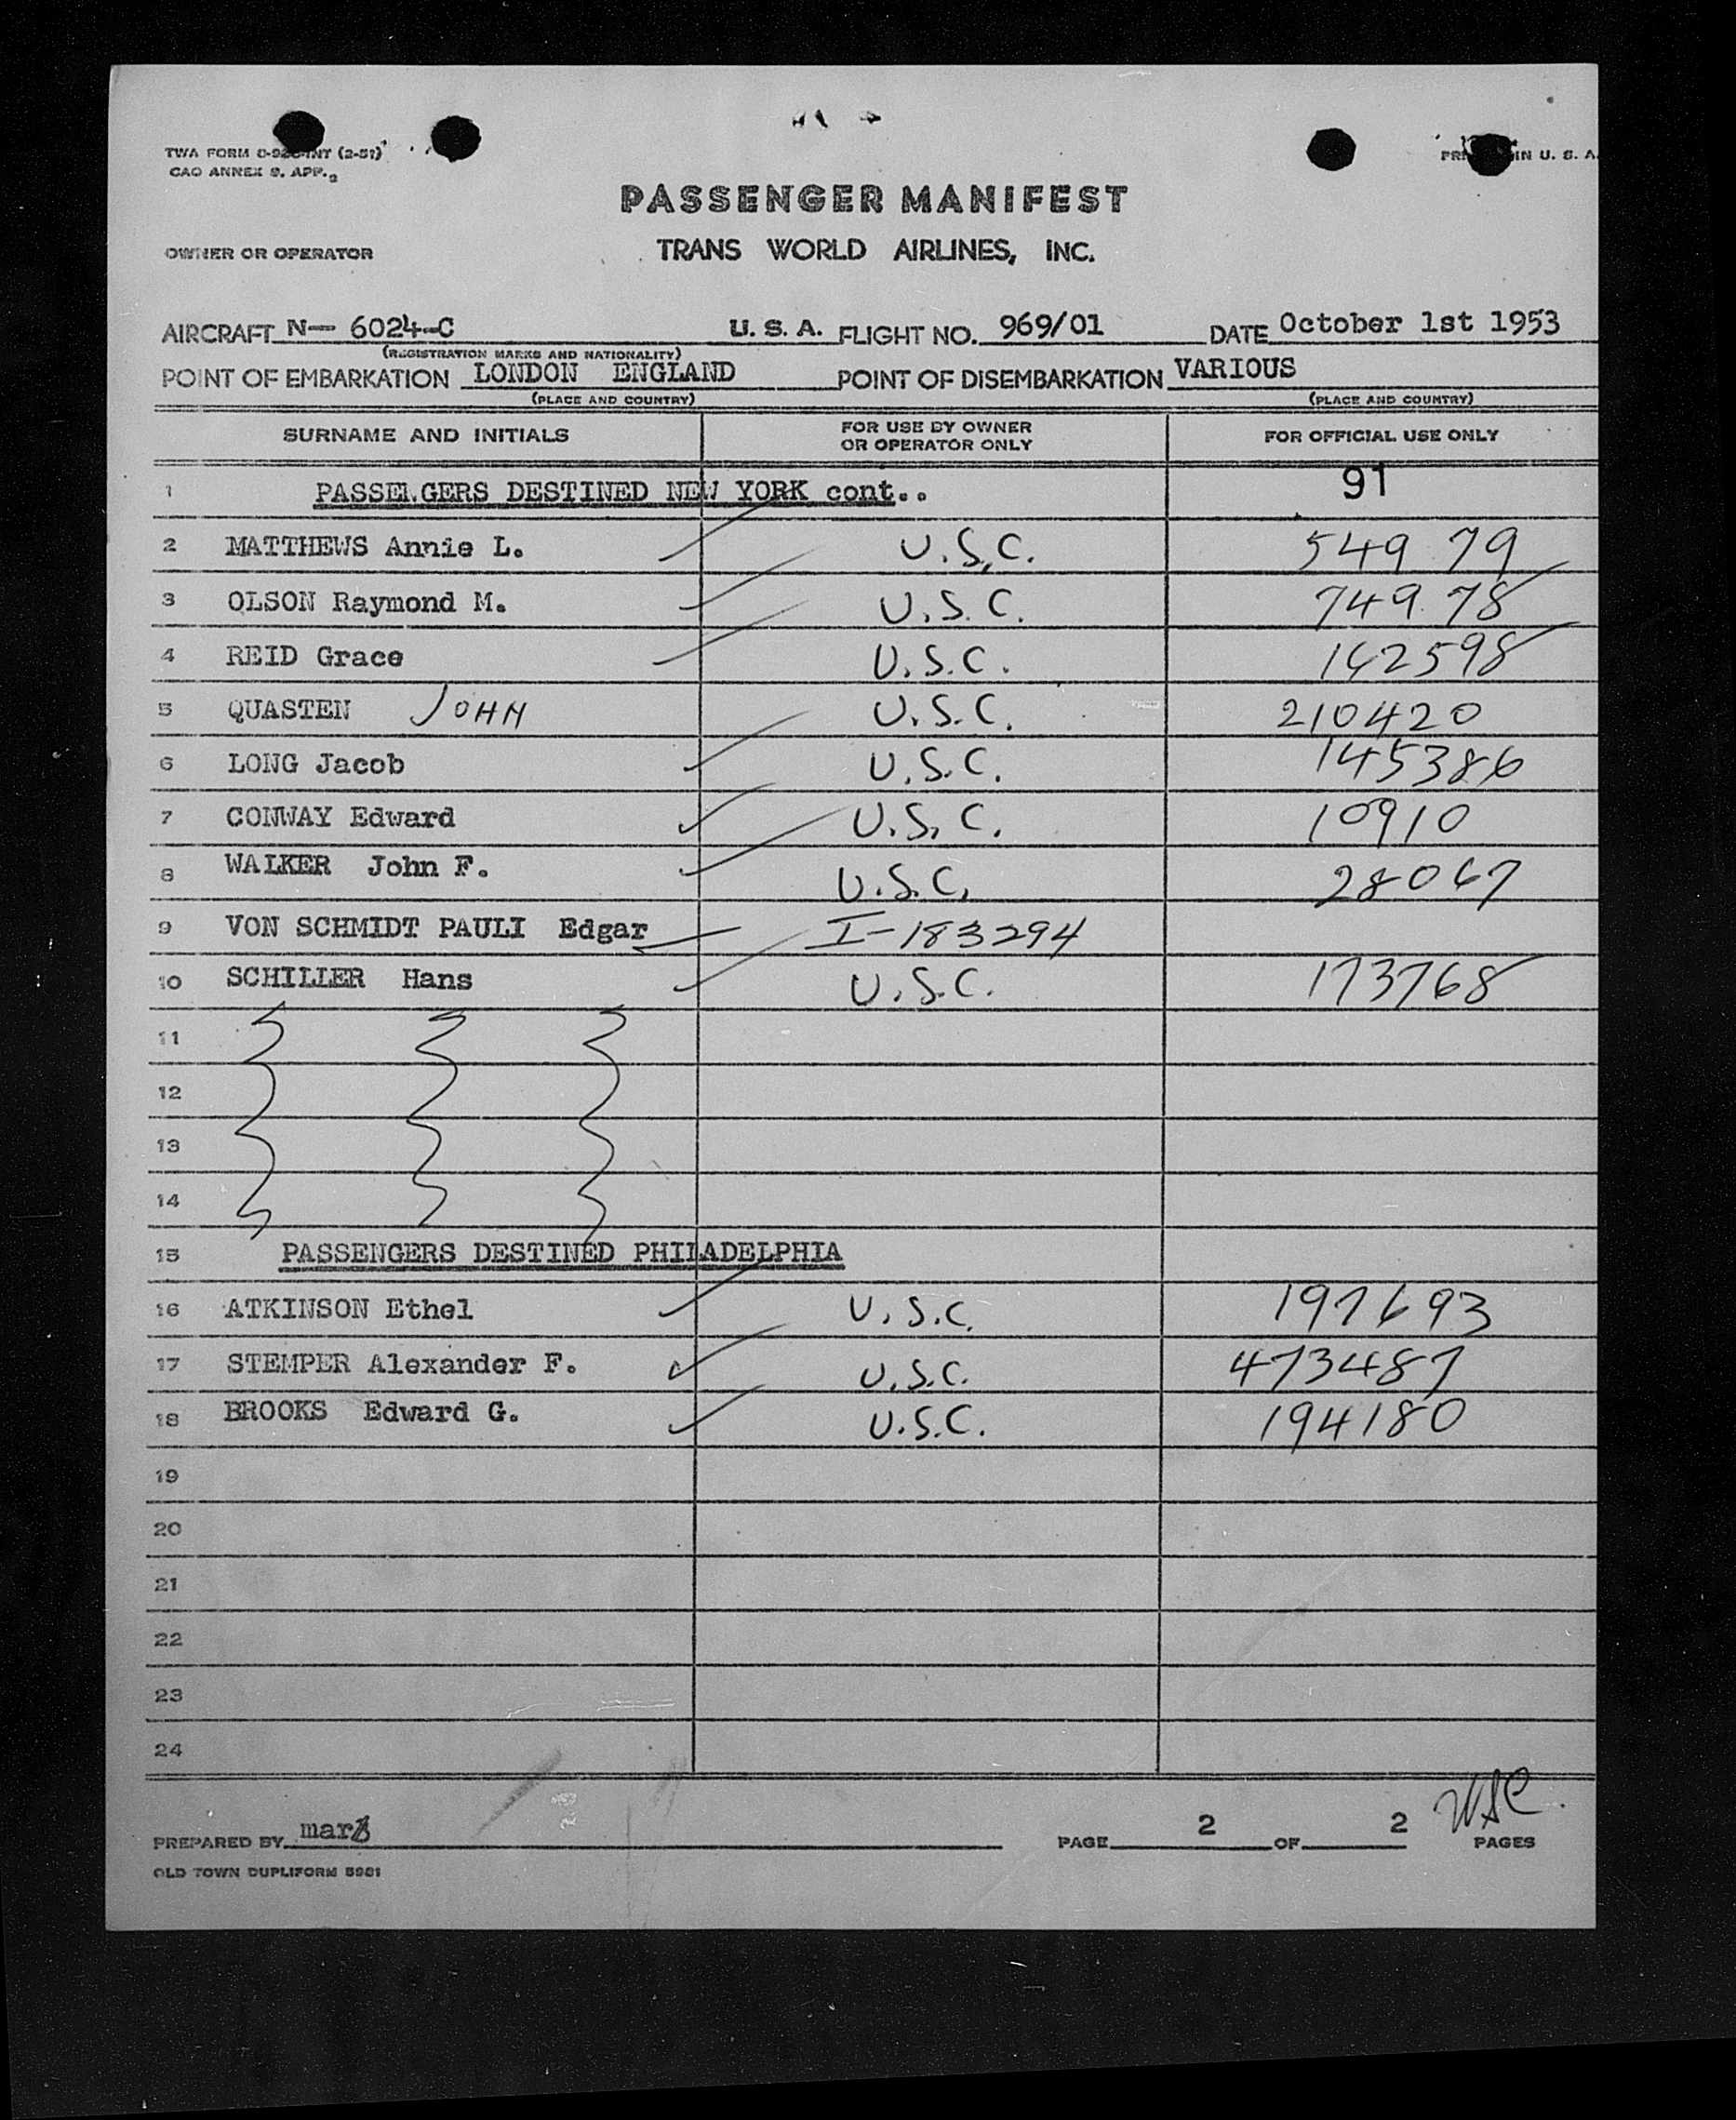 TWA FORM (2-51)
CAO ANNEX 9. APP. 2
IN U. S. A.
PASSENGER MANIFEST
OWNER OR OPERATOR TRANS WORLD AIRLINES, INC.
AIRCRAFT N— 6024-C U. S. A. FLIGHT NO. 969/01 DATE October 1st 1953
(REGISTRATION MARKS AND NATIONALITY)
POINT OF EMBARKATION LONDON ENGLAND POINT OF DISEMBARKATION VARIOUS
(PLACE AND COUNTRY) (PLACE AND COUNTRY)
SURNAME AND INITIALS FOR USE BY OWNER OR OPERATOR ONLY FOR OFFICIAL USE ONLY
1 PASSENGERS DESTINED NEW YORK cont.. 91
2 MATTHEWS Annie L. U.S.C. 549 79
3 OLSON Raymond M. U.S.C. 749 78
4 REID Grace U.S.C. 142598
5 QUASTEN JOHN U.S.C. 210420
6 LONG Jacob U.S.C. 145386
7 CONWAY Edward U.S.C. 10910
8 WALKER John F. U.S.C. 28067
9 VON SCHMIDT PAULI Edgar I-183294
10 SCHILLER Hans U.S.C. 173768
11
12
13
14
15 PASSENGERS DESTINED PHILADELPHIA
16 ATKINSON Ethel U.S.C. 197693
17 STEMPER Alexander F. U.S.C. 473487
18 BROOKS Edward G. U.S.C. 194180
19
20
21
22
23
24
PREPARED BY mar PAGE 2 OF 2 PAGES
OLD TOWN DUPLIFORM 5981